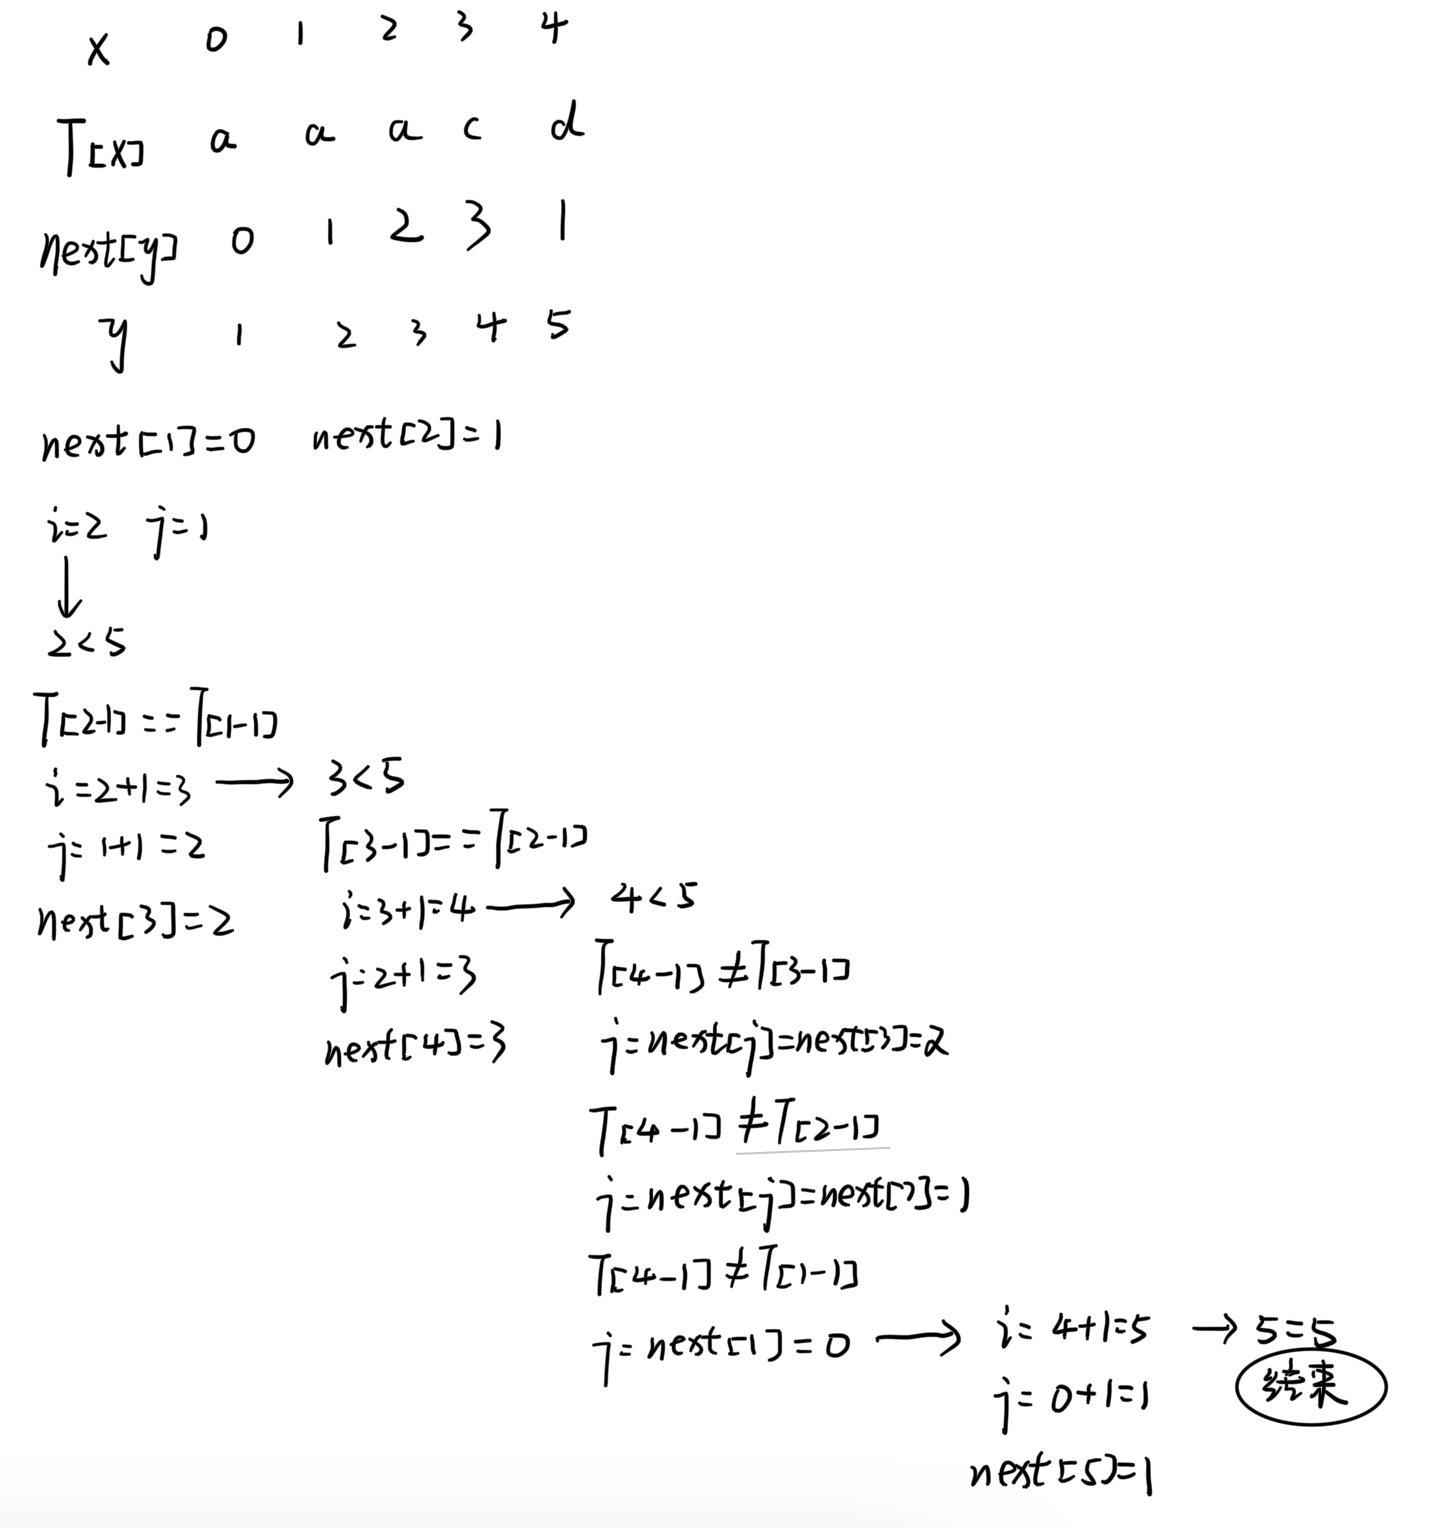 x 0 1 2 3 4
T[x] a a a c d
next[y] 0 1 2 3 1
y 1 2 3 4 5
next[1]=0 next[2]=1
i=2 j=1
↓
2<5
T[2-1]==T[1-1]
i=2+1=3 → 3<5
j=1+1=2
T[3-1]==T[2-1]
next[3]=2
i=3+1=4 → 4<5
j=2+1=3
next[4]=3
T[4-1]≠T[3-1]
j=next[j]=next[3]=2
T[4-1]≠T[2-1]
j=next[j]=next[2]=1
T[4-1]≠T[1-1]
j=next[1]=0 → i=4+1=5 → 5=5
j=0+1=1
结束
next[5]=1